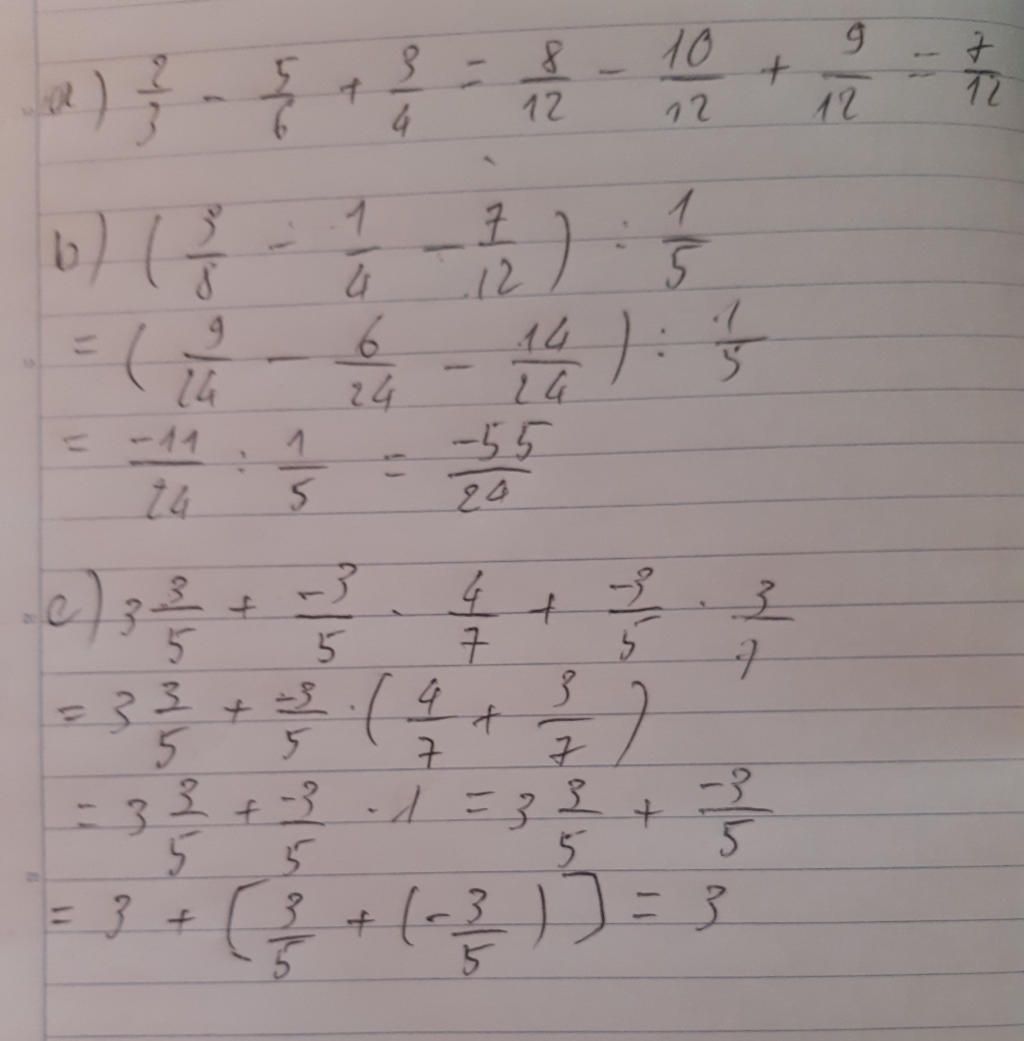 a) 2/3 - 5/6 + 3/4 = 8/12 - 10/12 + 9/12 = 7/12
b) (3/8 - 1/4 - 7/12) : 1/5
= (9/24 - 6/24 - 14/24) : 1/5
= -11/24 : 1/5 = -55/24
c) 3 3/5 + -3/5 . 4/7 + -3/5 . 3/7
= 3 3/5 + -3/5 . (4/7 + 3/7)
= 3 3/5 + -3/5 . 1 = 3 3/5 + -3/5
= 3 + [3/5 + (-3/5)] = 3